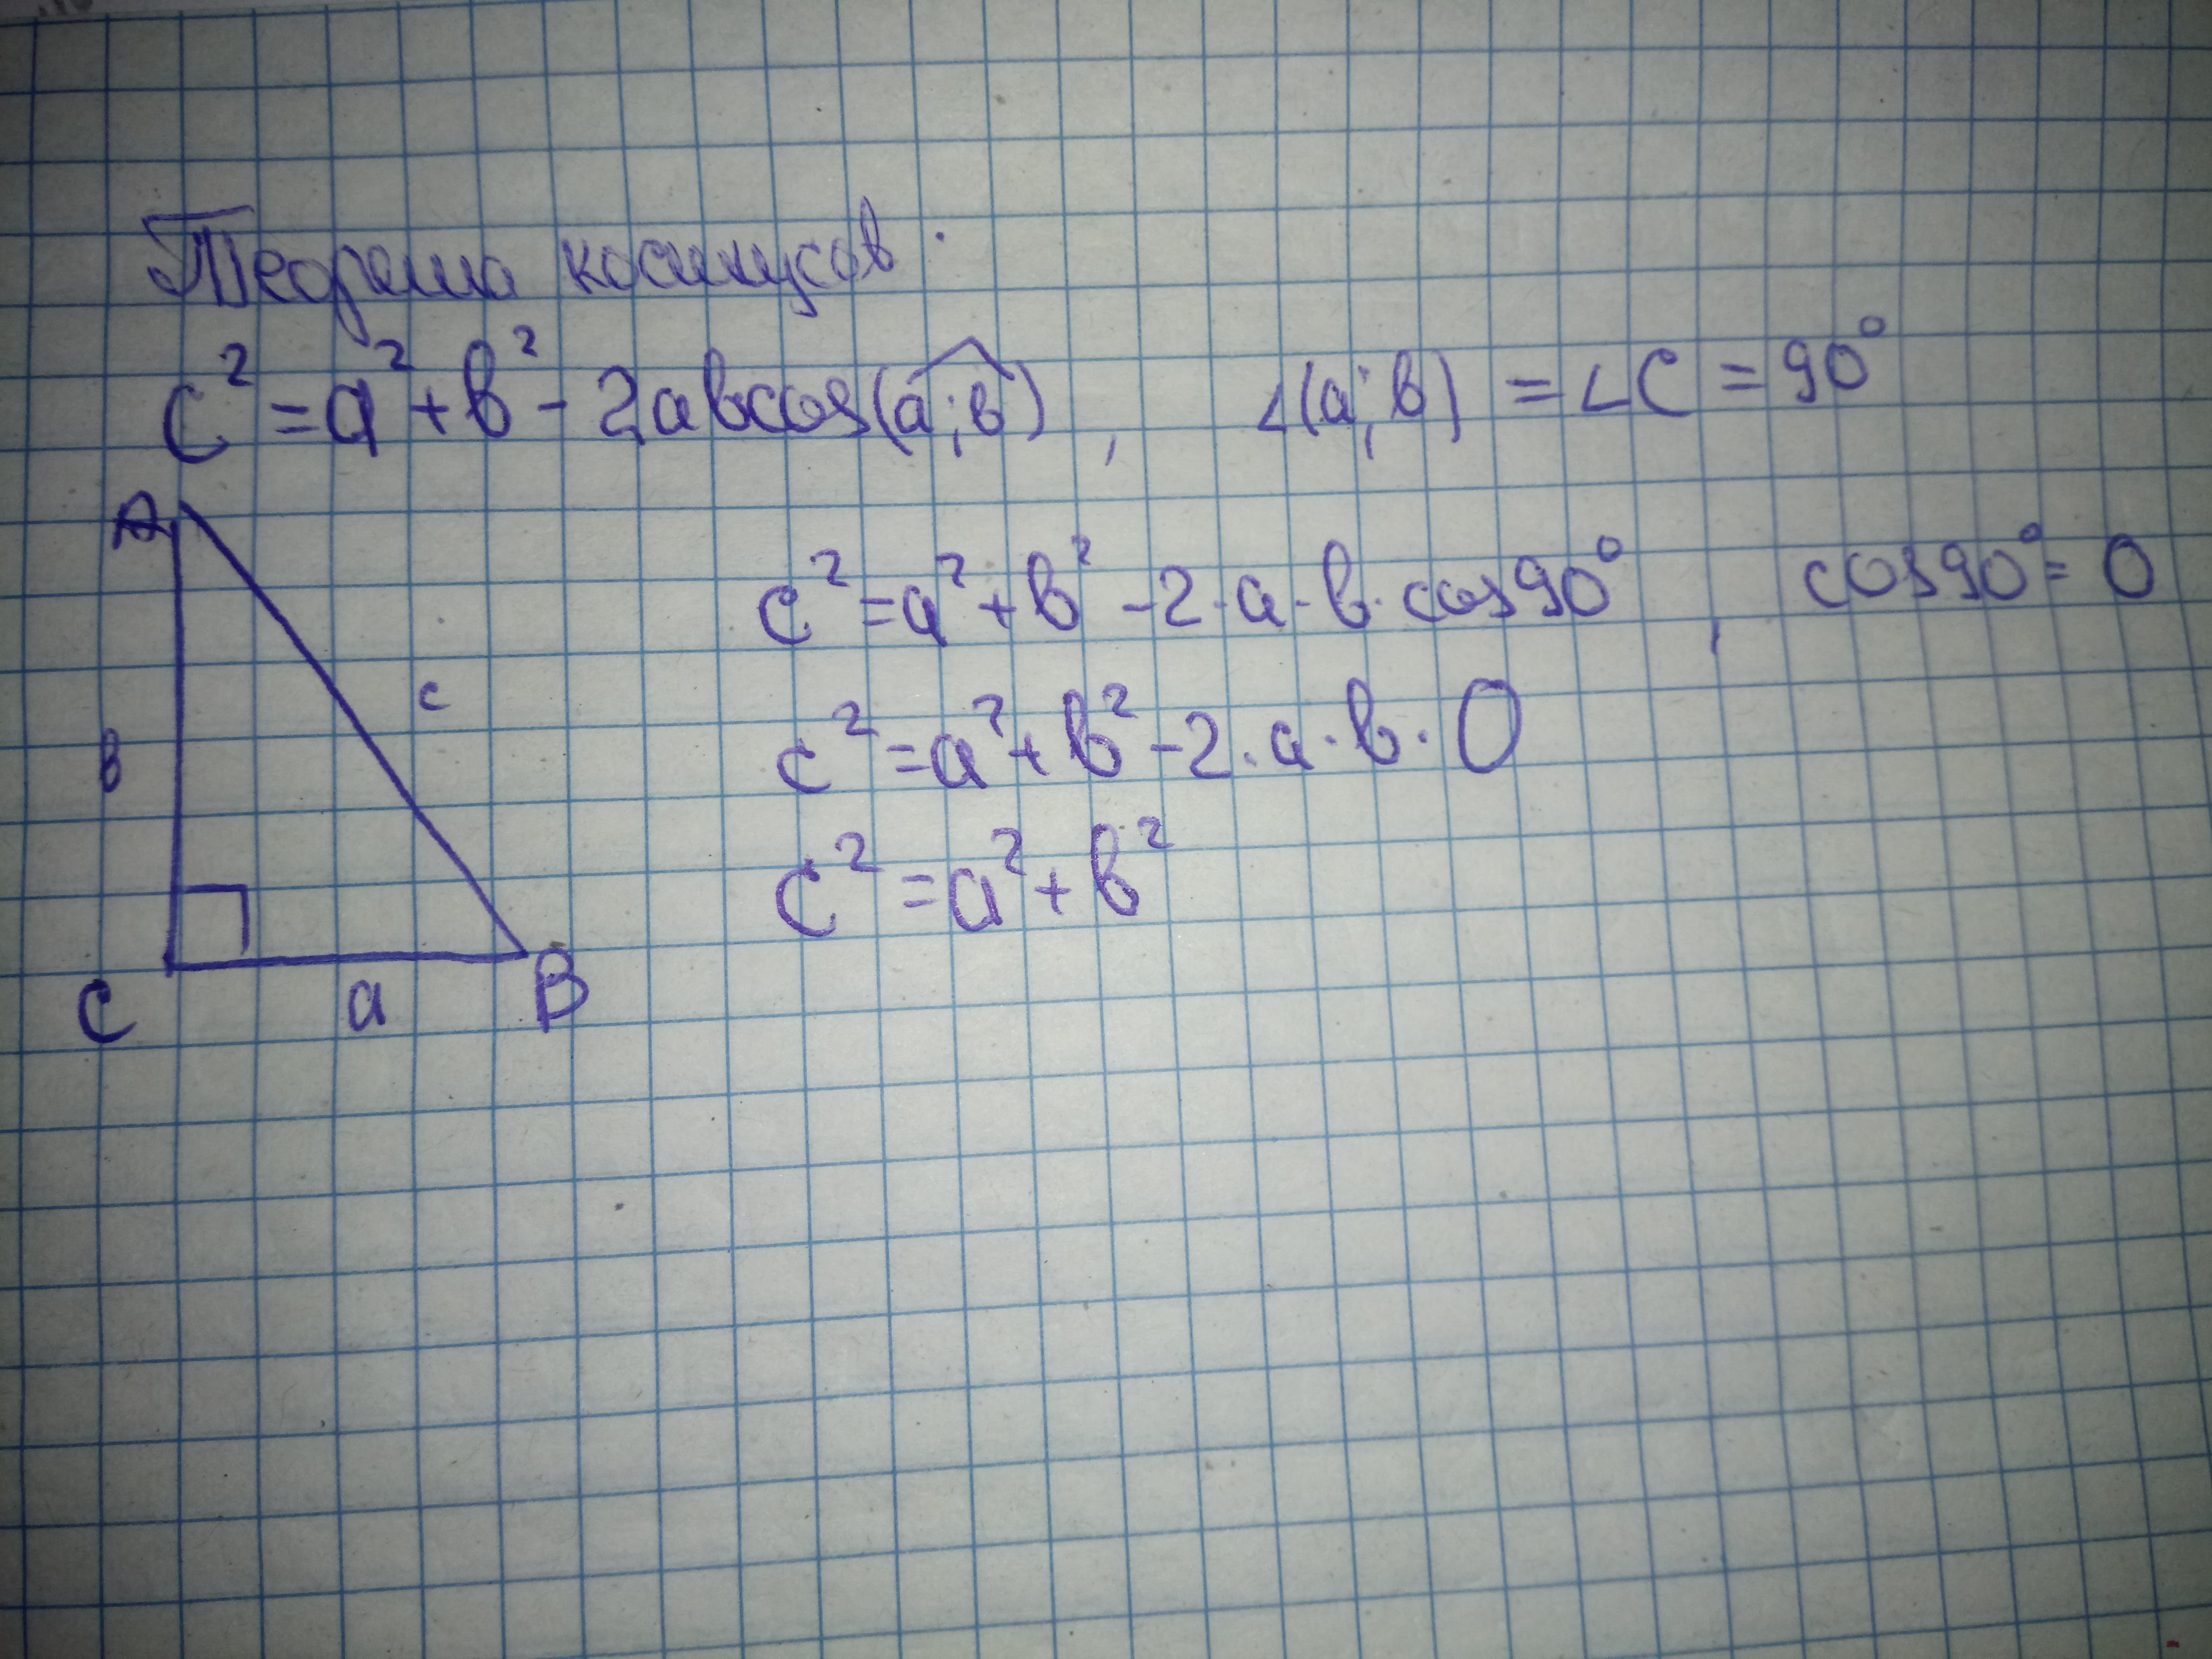 Теорема косинусов.
c² = a² + b² - 2abcos(a;b), ∠(a;b) = ∠C = 90°
A
c² = a² + b² - 2·a·b·cos90°, cos90° = 0
c
c² = a² + b² - 2·a·b·0
b
c² = a² + b²
C a B